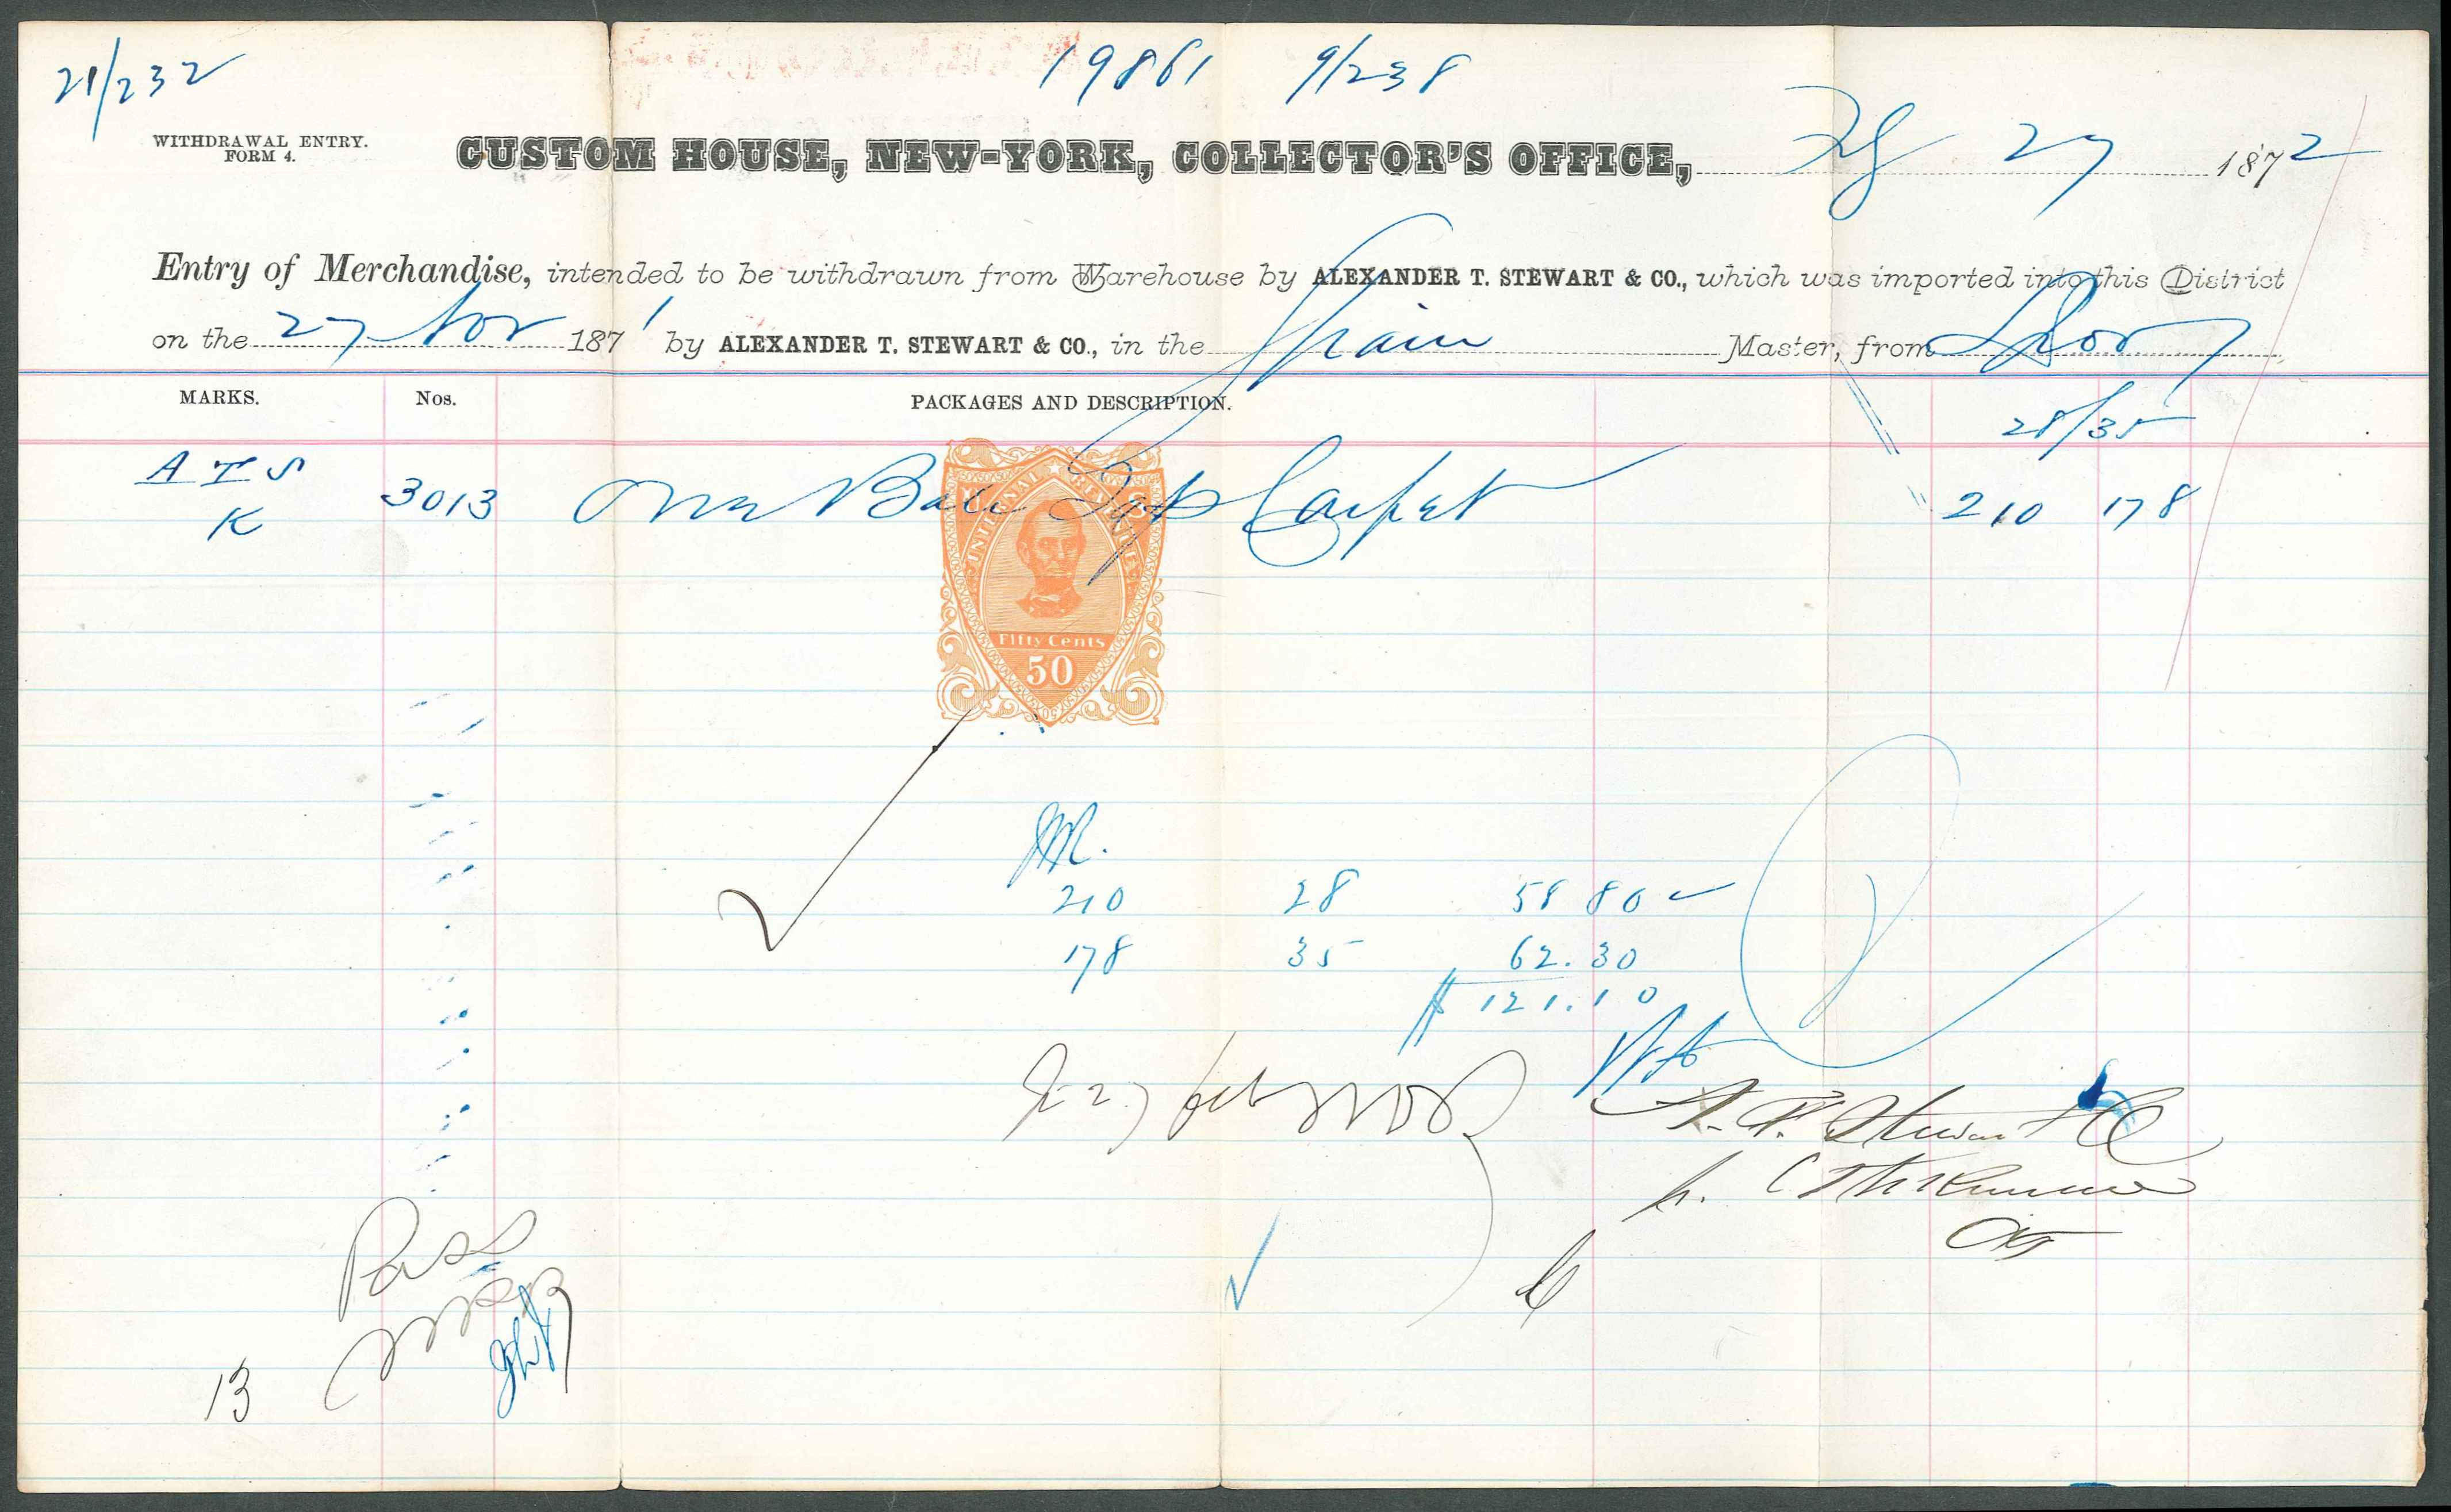 21/232 19861 9/238
WITHDRAWAL ENTRY.
FORM 4.
CUSTOM HOUSE, NEW-YORK, COLLECTOR'S OFFICE, 27 1872
Entry of Merchandise, intended to be withdrawn from Warehouse by ALEXANDER T. STEWART & CO., which was imported into this District
on the 27 Nov 1871 by ALEXANDER T. STEWART & CO., in the Spain Master, from
MARKS. Nos. PACKAGES AND DESCRIPTION. 28/35
A T S
K 3013 One Bale Carpet 210 178
INTERNAL REVENUE
U S
Fifty Cents
50
210 28 58 80
178 35 62.30
$ 121.10
A. T. Stewart & Co
Pass
13